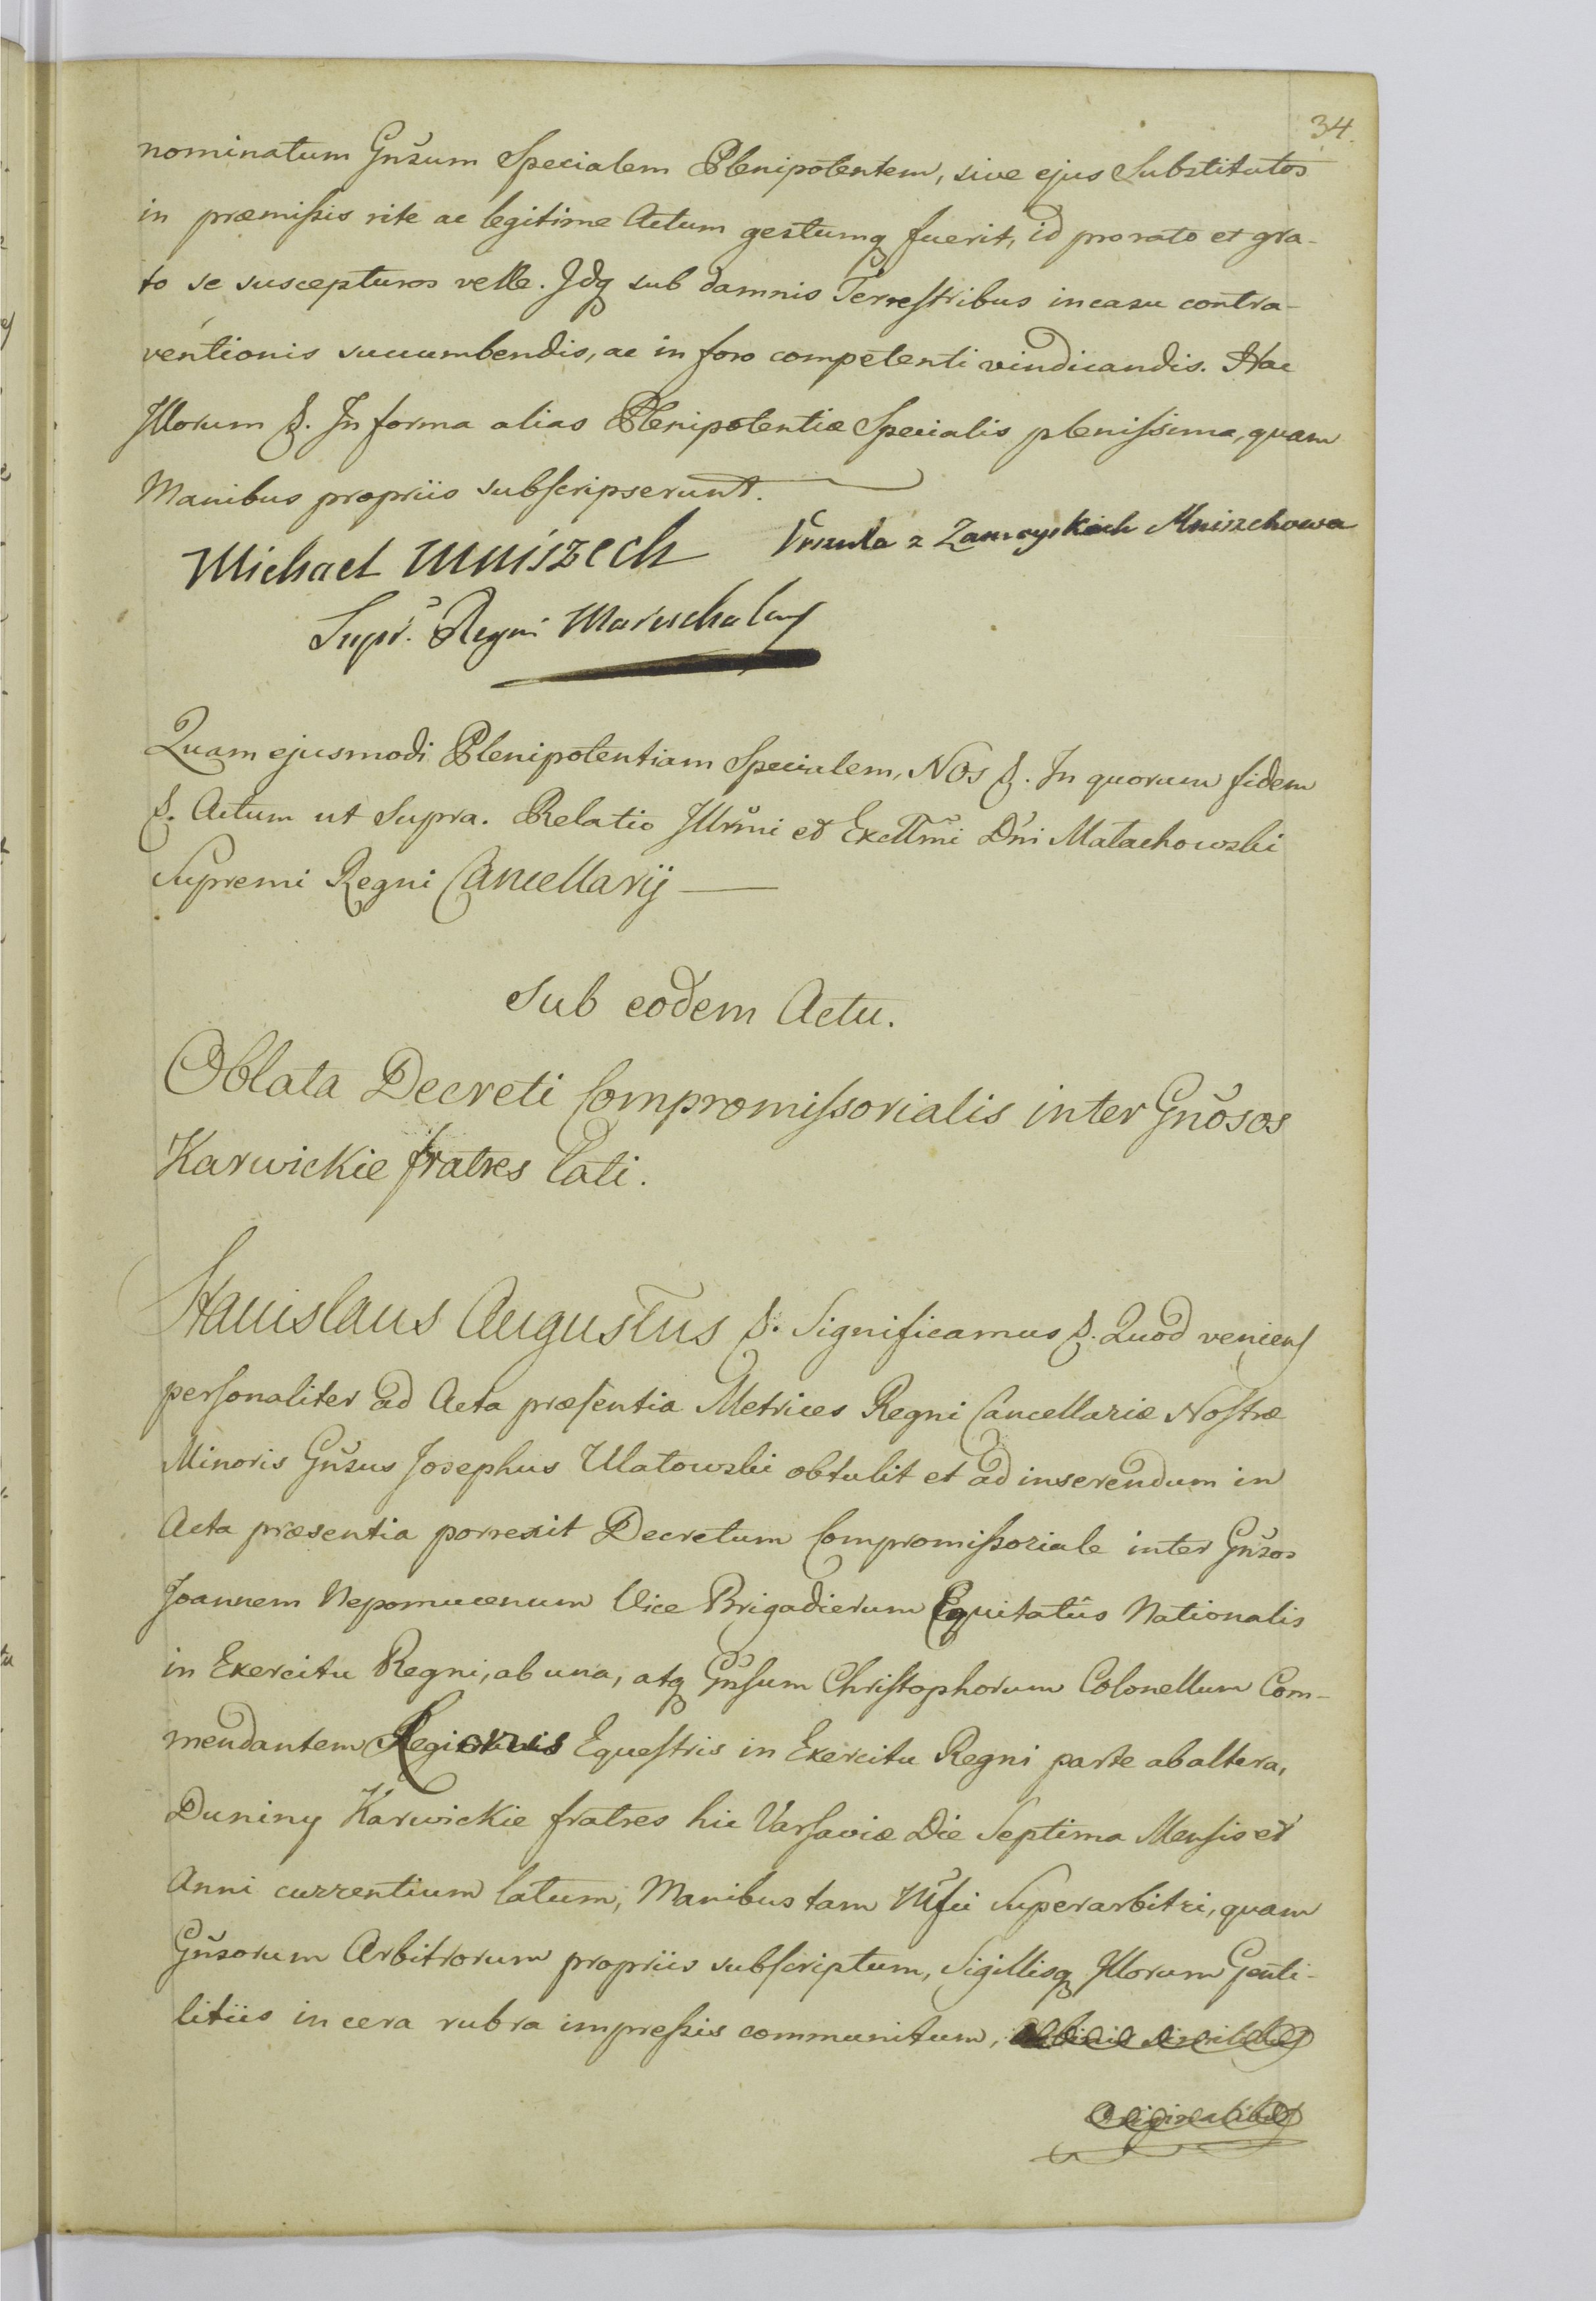 34.
nominatum Gnsum Specialem Plenipotentem, sive ejus Substitutos
in præmissis rite ac legitime Actum gestumq fuerit, id pro rato et gra-
to se suscepturos velle. Idq sub damnis Terrestribus in casu contra-
ventionis succumbendis, ac in foro competenti vindicandis. Hac
Illorum &. In forma alias Plenipotentiæ Specialis plenissima, quam
Manibus propriis subscripserunt.
Michael Mniszech Urszula z Zamoyskich Mniszchowa
Supr. Regni Mareschalus
Quam ejusmodi Plenipotentiam Specialem, Nos &. In quorum fidem
&. Actum ut Supra. Relatio Illrmi et Excllmi Dni Małachowski
Supremi Regni Cancellarij
Sub eodem Actu.
Oblata Decreti Compromissorialis inter Gnosos
Karwickie fratres Lati.
Stanislaus Augustus &. Significamus &. Quod veniens
personaliter ad Acta præsentia Metrices Regni Cancellariæ Nostræ
Minoris Gnsus Josephus Ulatowski obtulit et ad inserendum in
Acta præsentia porrexit Decretum Compromissoriale inter Gnsos
Joannem Nepomucenum Vice Brigadierum Equitatûs Nationalis
in Exercitu Regni, ab una, atq Gnsum Christophorum Colonellum Com-
mendantem Equestris in Exercitu Regni parte ab altera,
Duniny Karwickie fratres hic Varsaviæ Die Septima Mensis et
Anni currentium latum, Manibus tam Superarbitri, quam
Gnsorum Arbitrorum propriis subscriptum, Sigillisq Illorum Genti-
litiis in cera rubra impressis communitum,
Originalibus